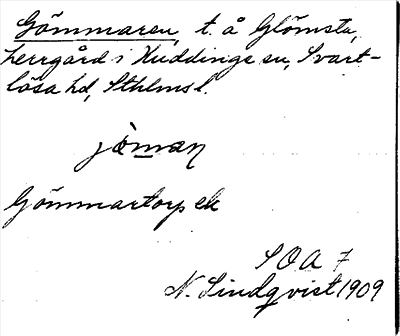 Gömmaren, t. å Glömsta,
herrgård i Huddinge sn, Svart-
lösa hd, Sthlms l.
jömaṇ
Gömmartorp ek
SOA 7
N. Lindqvist 1909